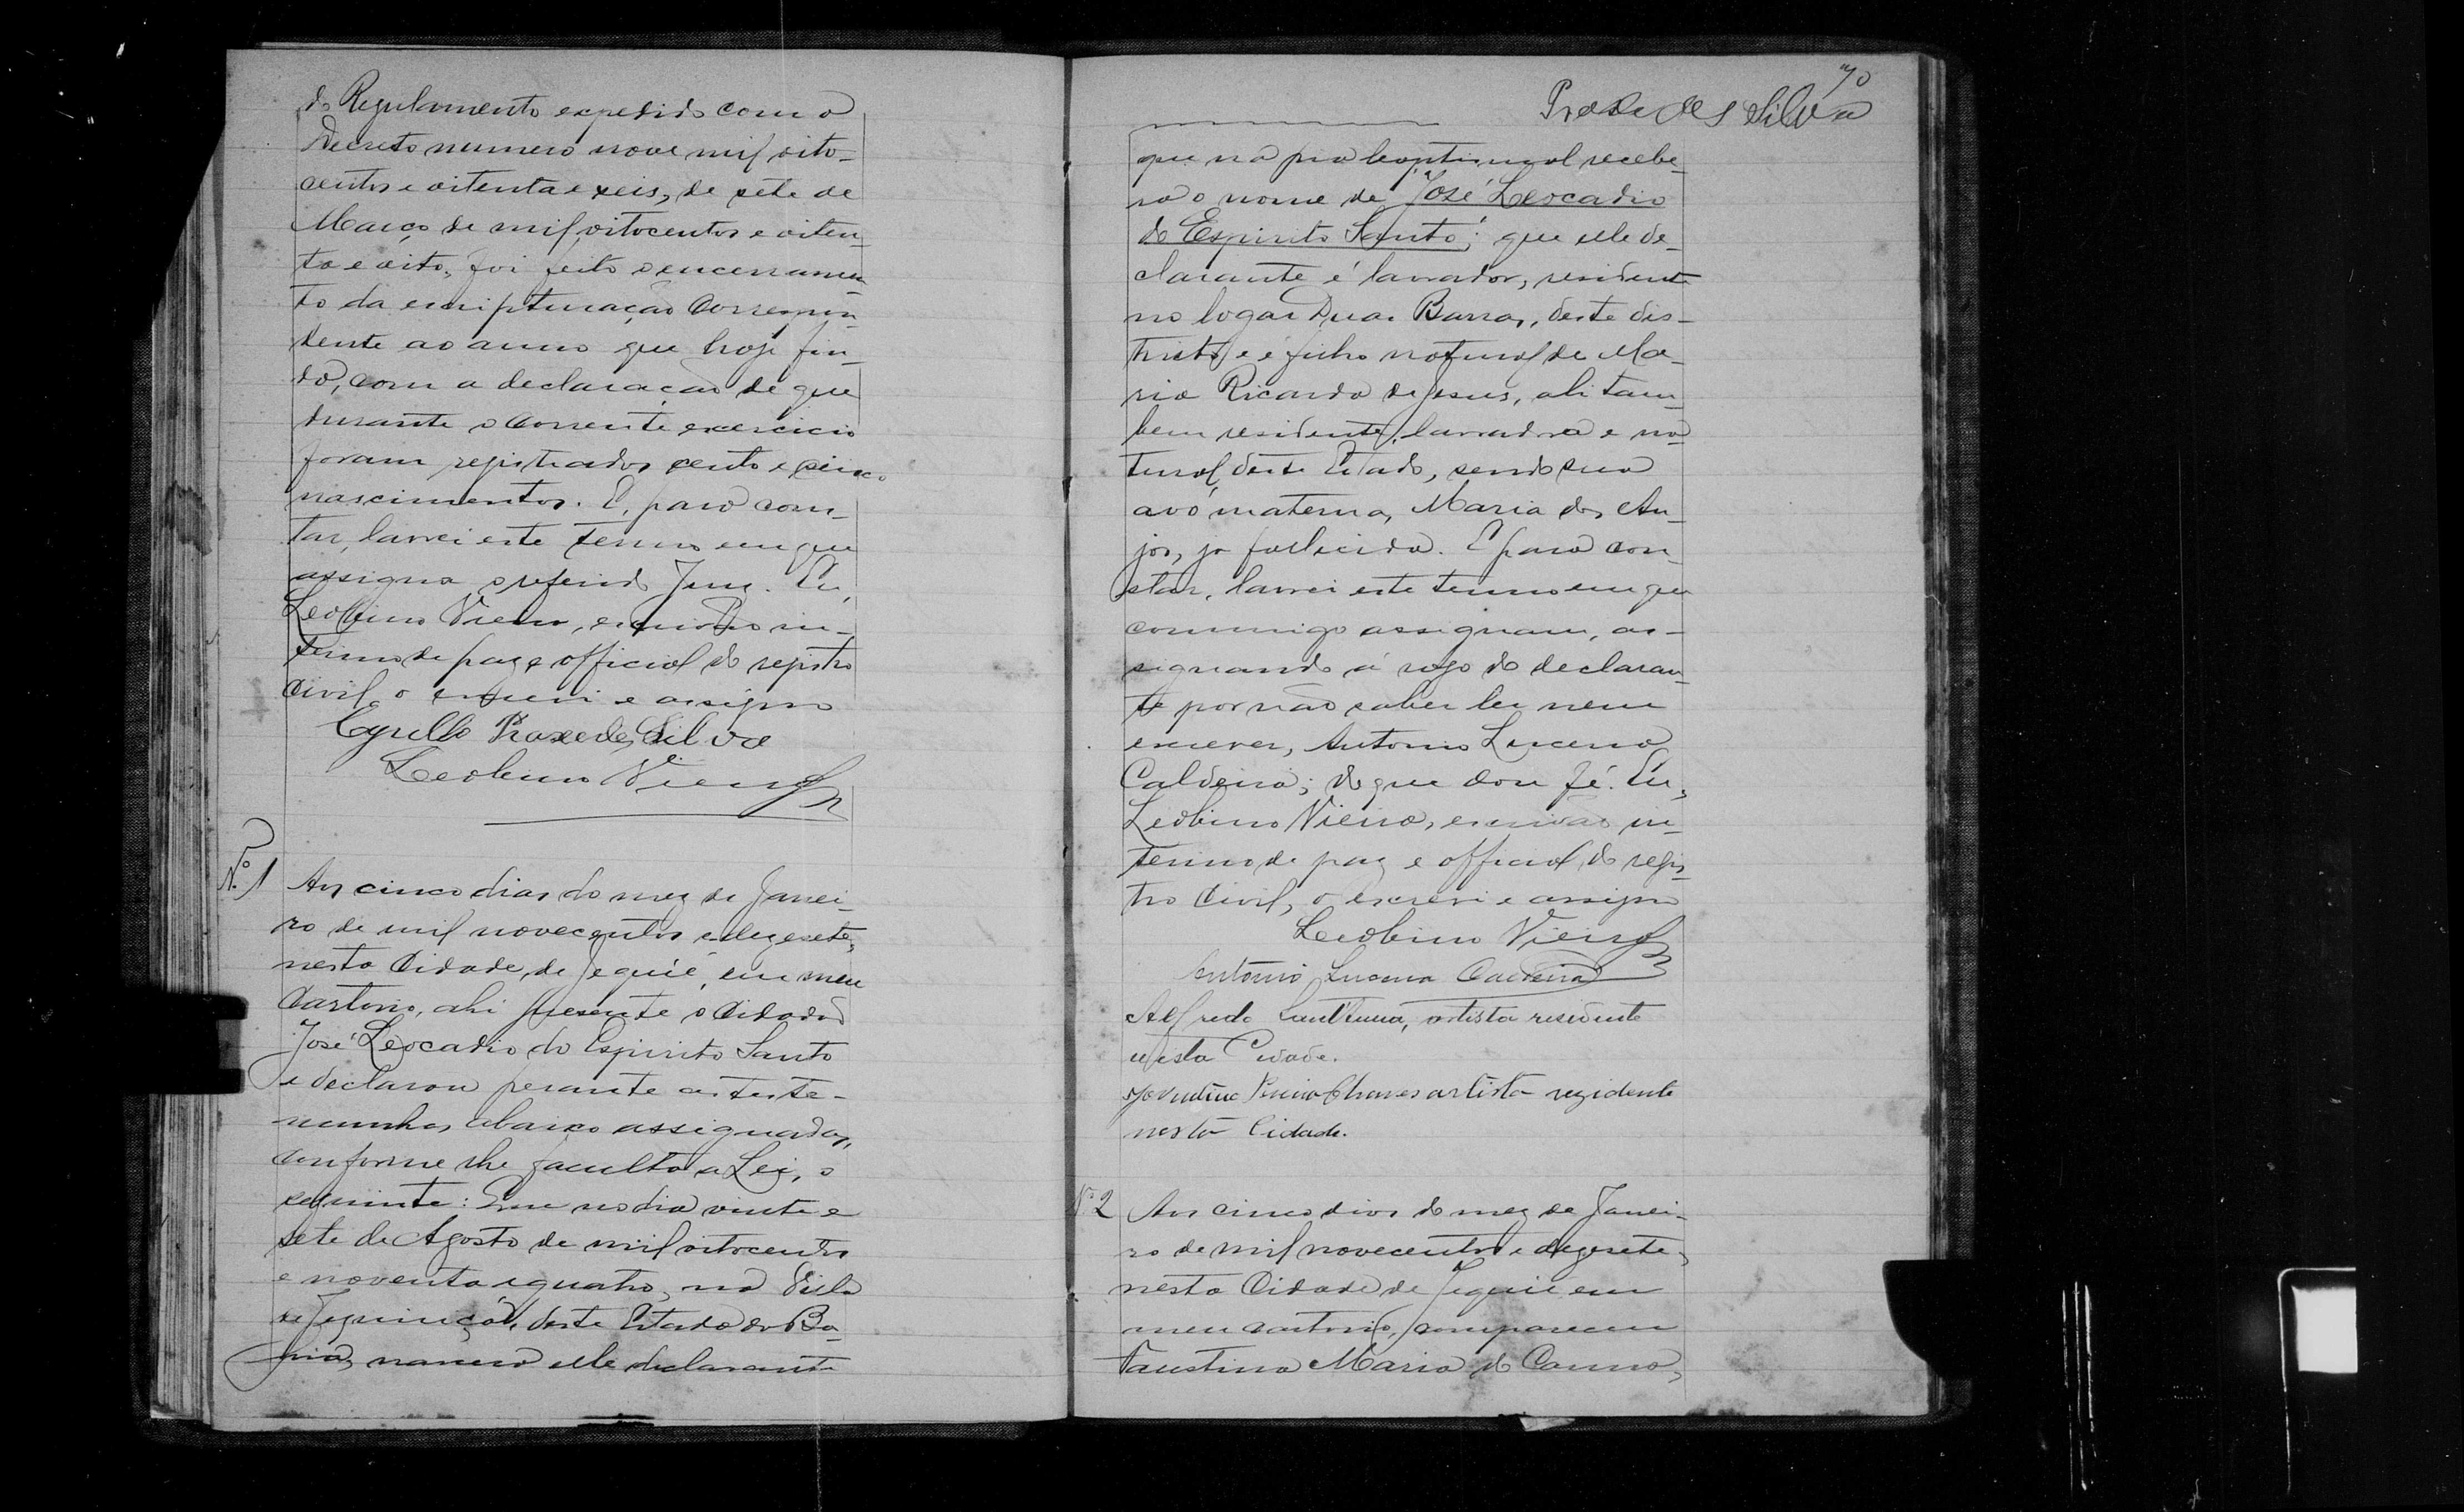 do Regulamento expedido com o
Decreto numero nove mil oito-
centos e oitenta e seis, de sete de
Março de mil oitocentos e oiten-
ta e oito, foi feito o encerramen-
to da escripturação correspon-
dente ao anno que hoje fin-
do, com a declaração de que
durante o corrente exercicio
foram registrados cento e cinco
nascimentos. E, para cons-
tar, lavrei este termo em que
assigna o referido Juiz. Eu,
Leobino Vieira, escrivão in-
terino de paz e official do registro
civil o escrevi e assigno
Cyrillo Praxedes Silva
Leobino Vieira
Nº 1
Aos cinco dias do mez de Janei-
ro de mil novecentos e dezesete,
nesta Cidade de Jequié, em meu
Cartorio, ahi presente o Cidadão
José Leocadio do Espirito Santo
e declarou perante as teste-
munhas abaixo assignadas,
conforme lhe faculta a Lei, o
seguinte: Que no dia vinte e
sete de Agosto de mil oitocentos
e noventa e quatro, na Villa
de Jequiriçá, deste Estado da Ba-
hia, nasceu elle declarante
70
Praxedes Silva
que na pia baptismal recebe-
ra o nome de José Leocadio
do Espirito Santo; que elle de-
clarante é lavrador, residente
no logar Duas Barras, deste dis-
tricto e é filho natural de Ma-
ria Ricarda de Jesus, ali tam-
bem residente, lavradora e na-
tural deste Estado, sendo sua
avó materna, Maria dos An-
jos, ja fallecida. E para con-
star, lavrei este termo em que
commigo assignam, as-
signando á rogo do declaran-
te por não saber ler nem
escrever, Antonio Lucena
Caldeira; do que dou fé. Eu,
Leobino Vieira, escrivão in-
terino de paz e official do regis-
tro Civil, o escrevi e assigno
Leobino Vieira
Antonio Lucena Caldeira
Alfredo Sant'Anna, artista residente
nesta Cidade.
Chaves artista rezidente
nesta Cidade.
Nº 2
Aos cinco dias do mez de Janei-
ro de mil novecentos e dezesete,
nesta Cidade de Jequié em
meu cartorio, compareceu
Faustina Maria do Carmo,